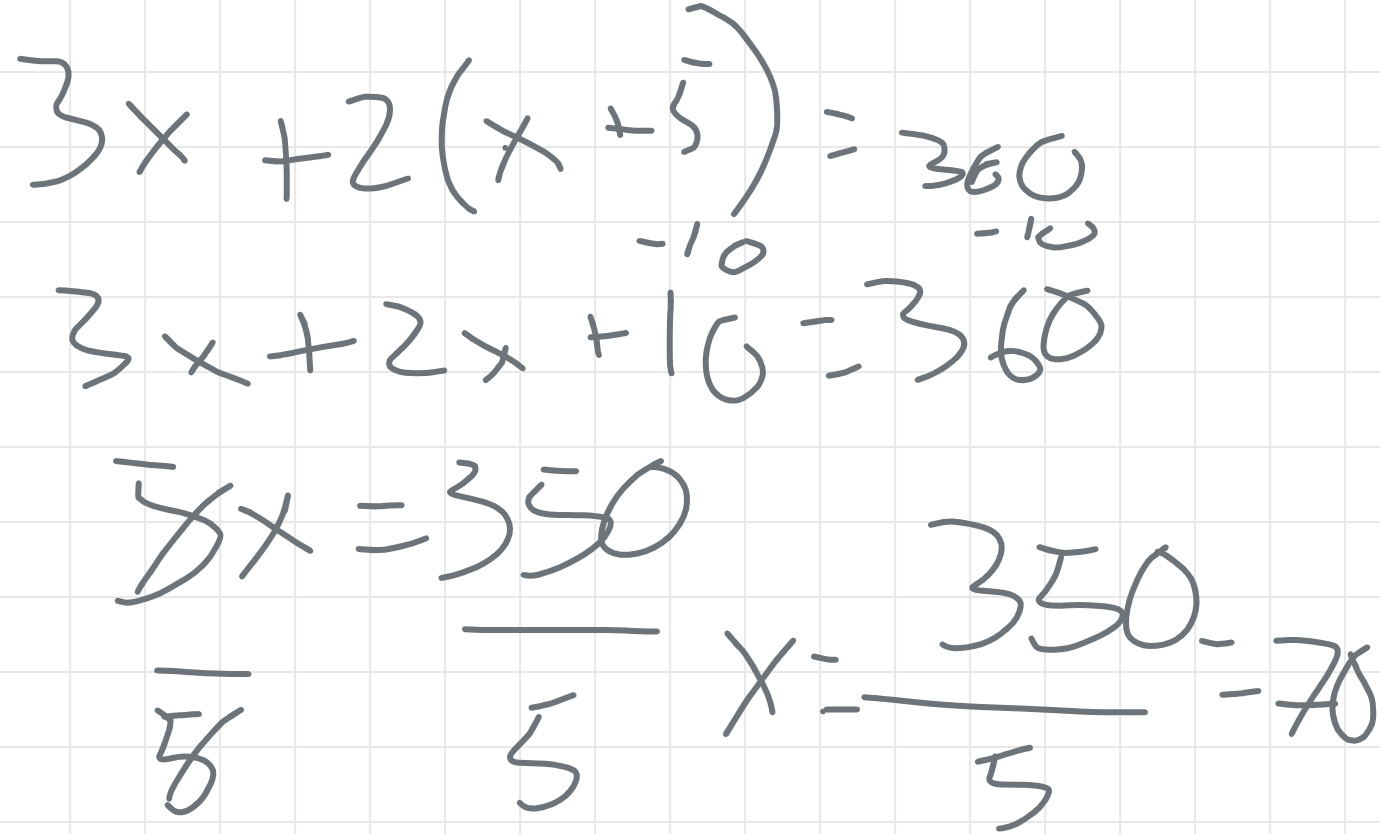 3x + 2(x + 5) = 360
-10 -10
3x + 2x + 10 = 360
5x = 350
5 5
x = 350 = 70
5